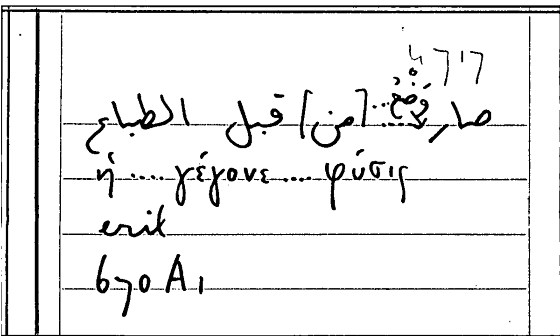 صار ... وَضْعٌ ... [من] قبل الطباع
ἡ .... γέγονε .... φύσις
erit
670 A 1